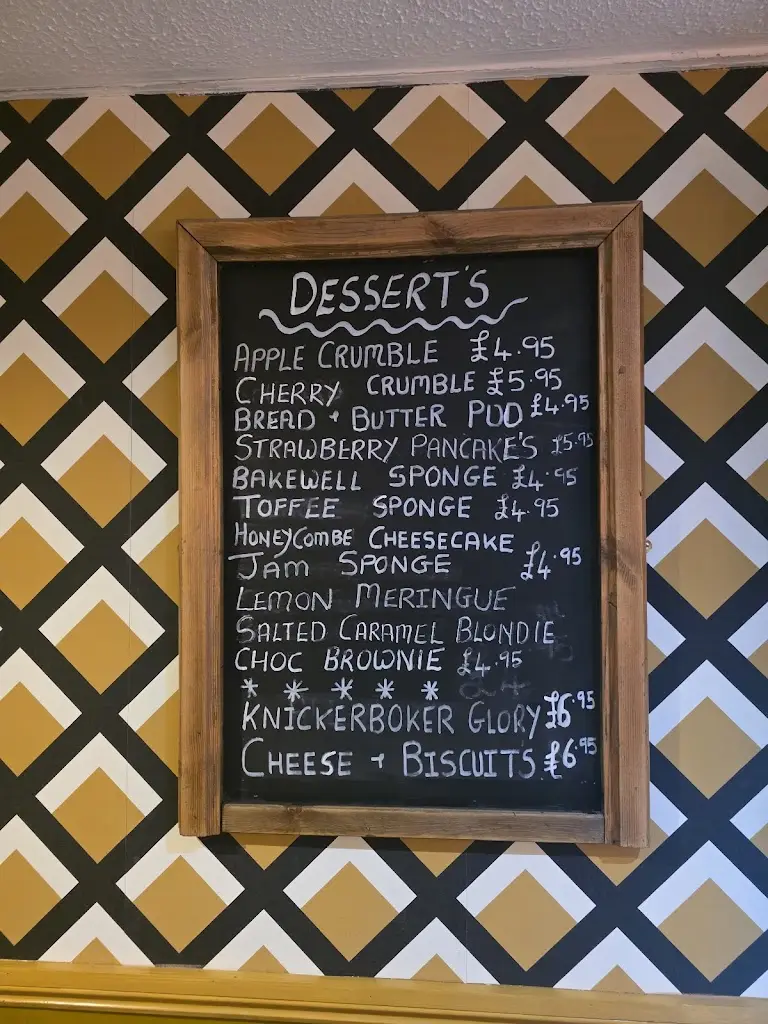 DESSERT'S
APPLE CRUMBLE £4.95
CHERRY CRUMBLE £5.95
BREAD + BUTTER PUD £4.95
STRAWBERRY PANCAKE'S £5.95
BAKEWELL SPONGE £4.95
TOFFEE SPONGE £4.95
HONEYCOMBE CHEESECAKE
JAM SPONGE £4.95
LEMON MERINGUE
SALTED CARAMEL BLONDIE
CHOC BROWNIE £4.95
* * * * *
KNICKERBOKER GLORY £6.95
CHEESE + BISCUITS £6.95